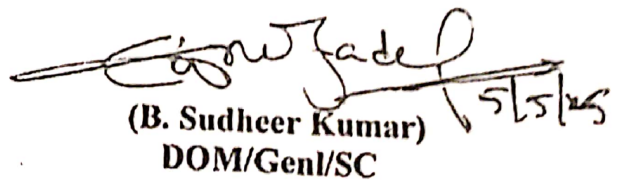 5/5/25
(B. Sudheer Kumar)
DOM/Genl/SC